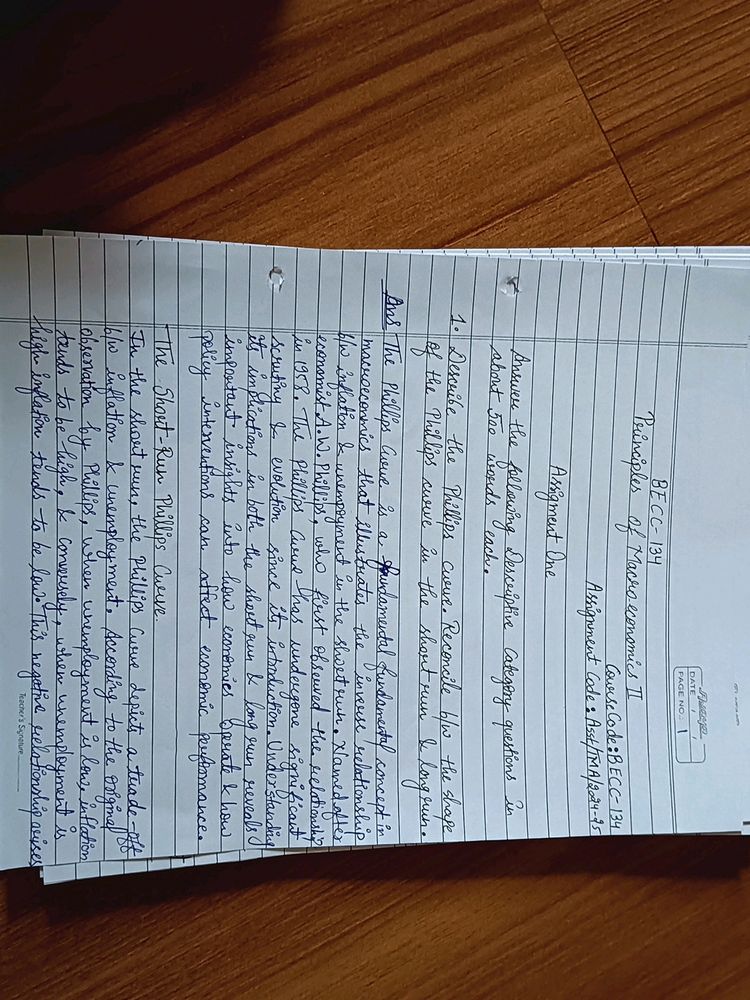 DATE: / /
PAGE NO.: 1
BECC-134
Principles of Macroeconomics II
Course Code: BECC-134
Assignment Code: Asst/TMA/2024-25
Assigment One
Answer the following Descriptive Category questions in
about 500 words each.
1. Describe the Phillips curve. Reconcile b/w the shape
of the Phillips curve in the short run & long run.
Ans The Phillips Curve is a fundamental fundamental concept in
macroeconomics that illustrates the inverse relationship
b/w inflation & unemployment in the short run. Named after
economist A.W. Phillips, who first observed the relationship
in 1958. The Phillips Curve has undergone significant
scrutiny & evolution since its introduction. Understanding
its implications in both the short run & long run reveals
important insights into how economies operate & how
policy interventions can affect economic performance.
The Short-Run Phillips Curve
In the short run, the Phillips Curve depict a trade-off
b/w inflation & unemployment. According to the original
observation by Phillips, when unemployment is low, inflation
tends to be high, & conversely, when unemployment is
high inflation tends to be low. This negative relationship
Teacher's Signature